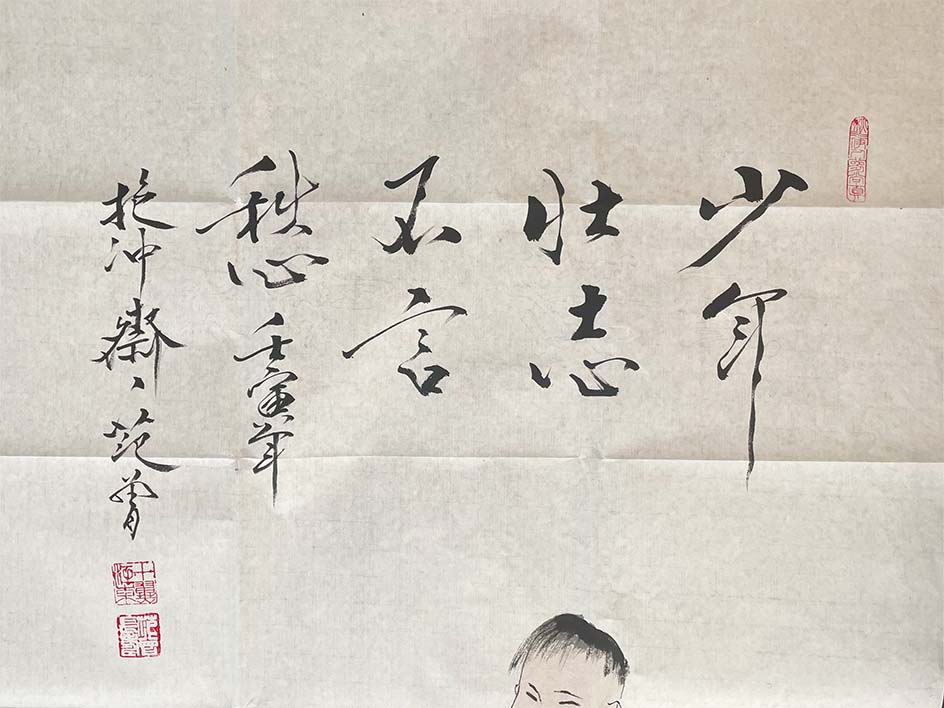 少年
壮志
不言
愁 壬寅年
抱冲齋丶范曾